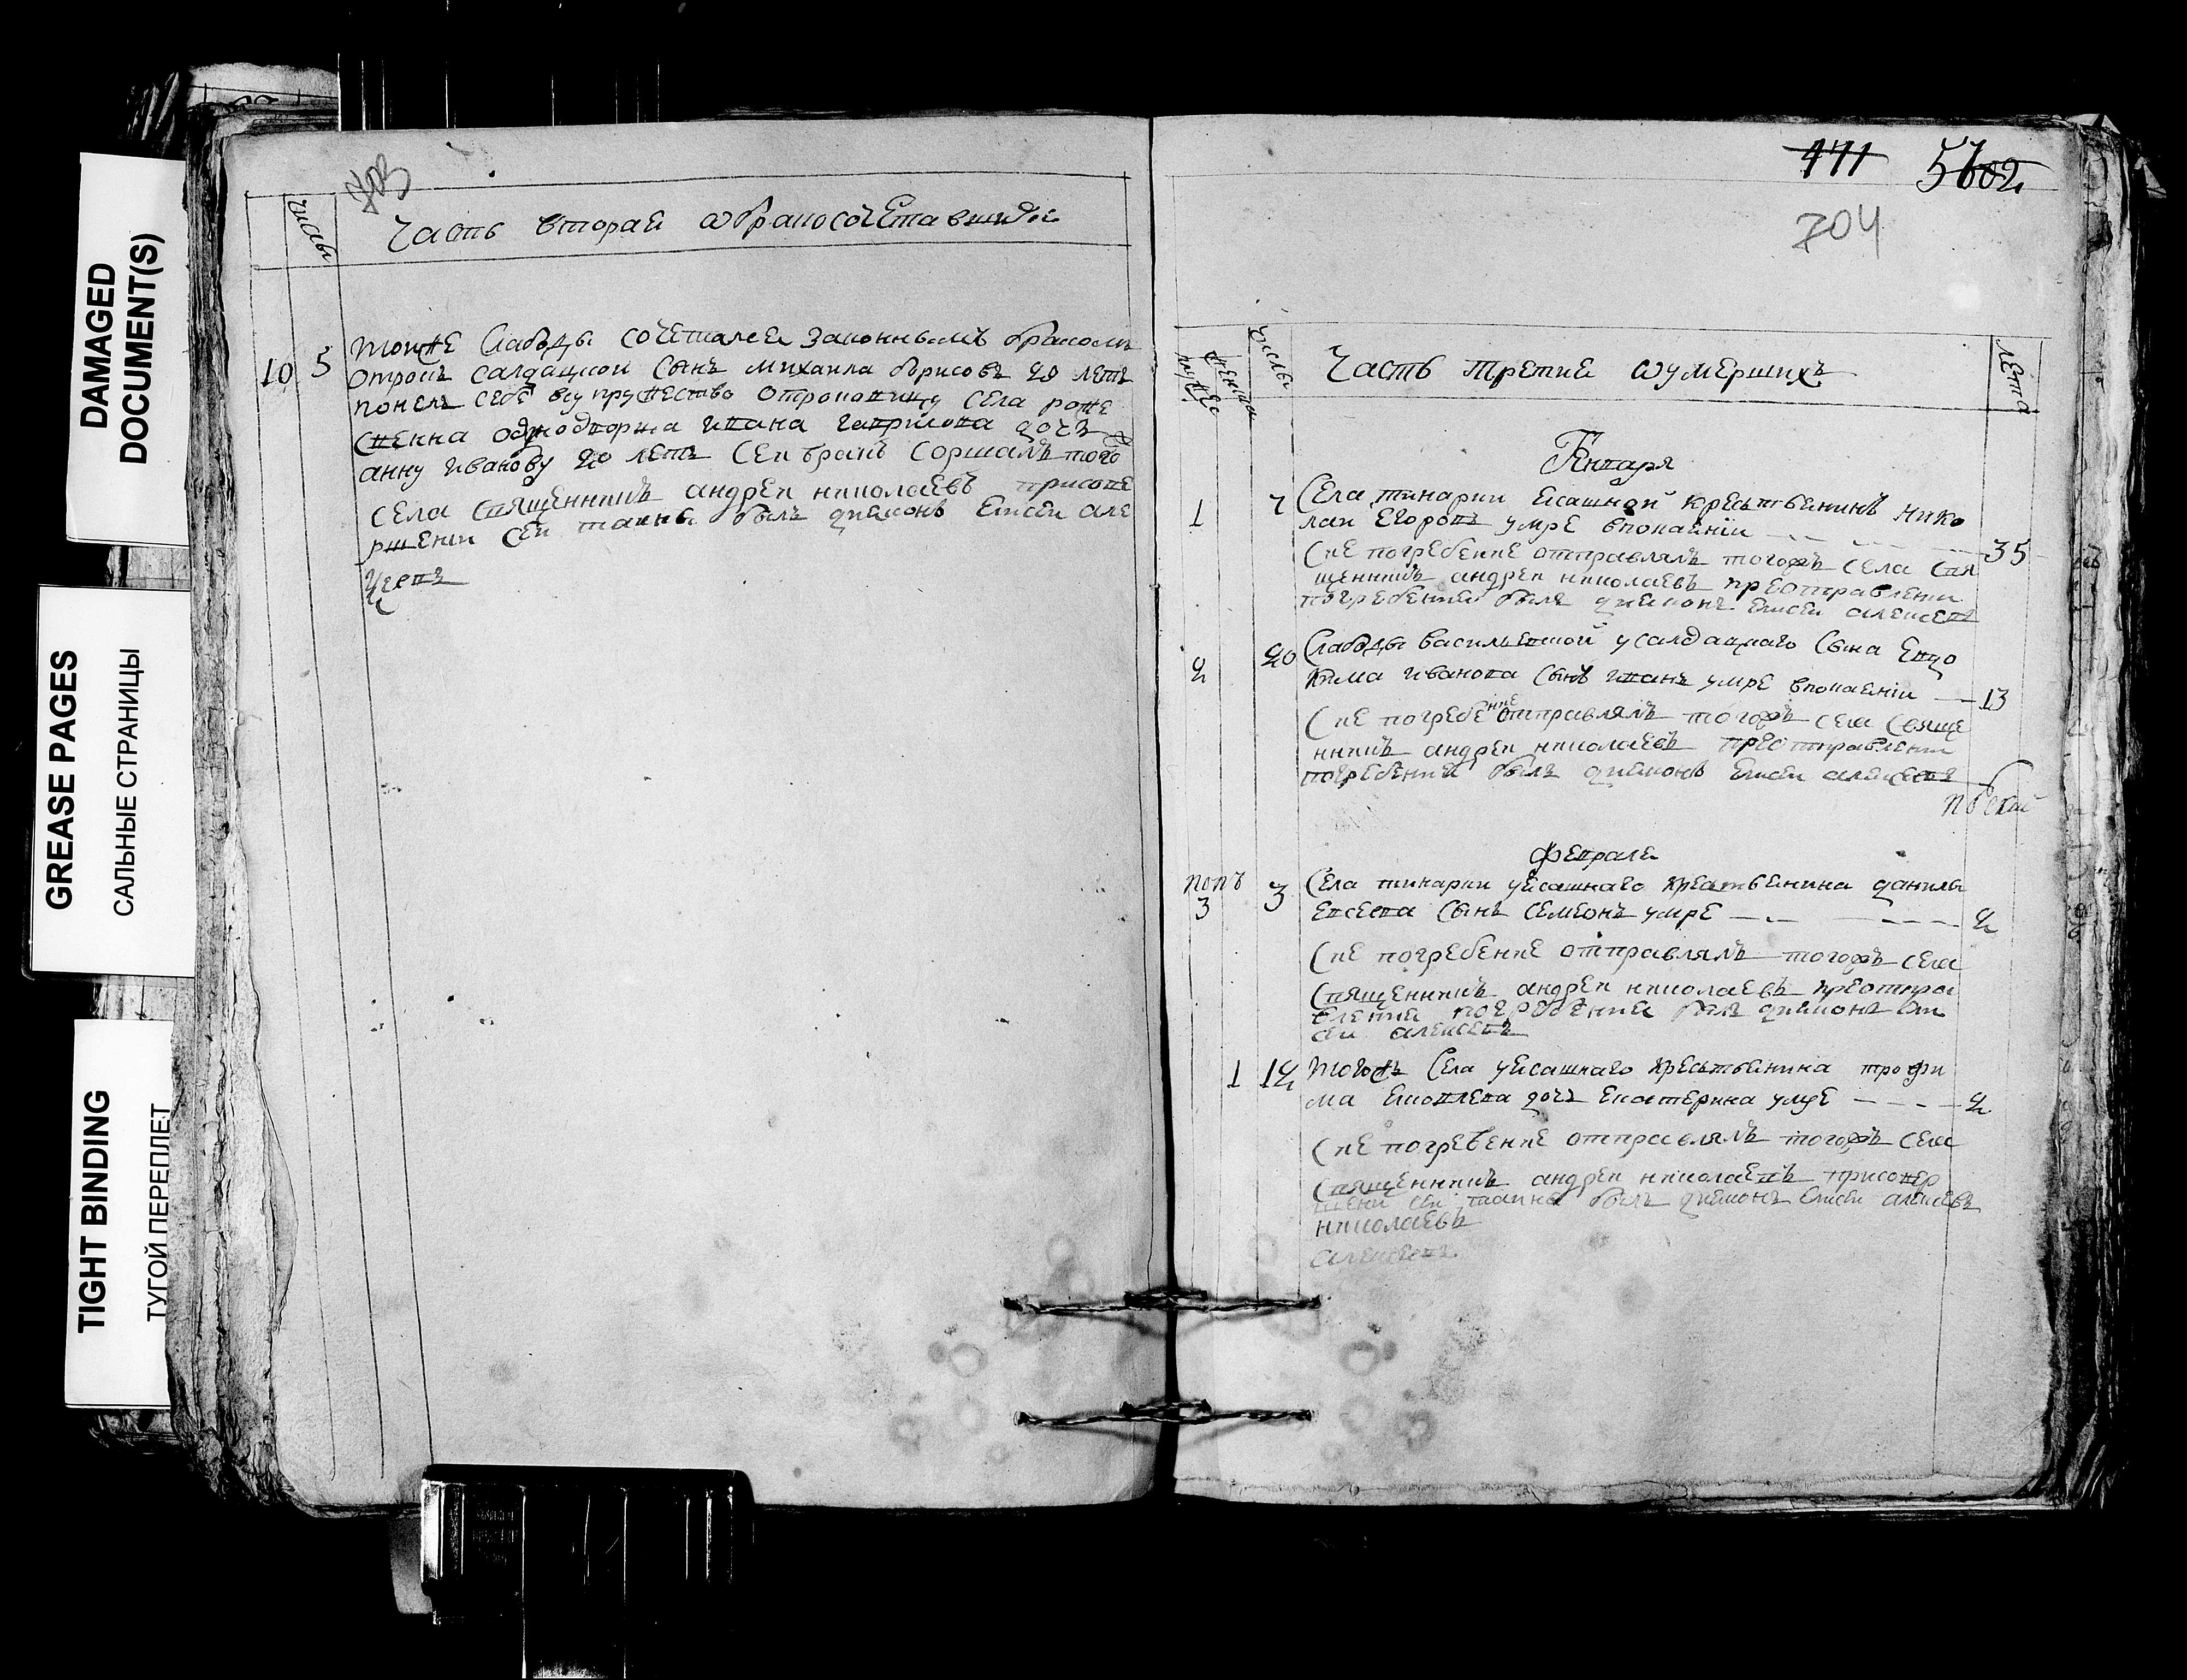 DAMAGED
DOCUMENT(S)
GREASE PAGES
САЛЬНЫЕ СТРАНИЦЫ
TIGHT BINDING
ТУГОЙ ПЕРЕПЛЕТ
703
числы
Часть вторая ѡ бракосочетавшихс
10 5 тойже Слободы сочетался законнымъ бракомъ
отрокъ салдацкой сынъ михаила борисовъ 20 летъ
понелъ себе всупружество отроковицу села роже
ственна однодворца ивана гаврилова дочь
анну иванову 20 летъ Сей бракъ соршалъ того
села священникъ андрей николаевъ присове
ршении сей таины былъ диаконъ Елисей але
ѯеевъ
471 5602
704
женска
числы
Часть третиа ѡ умершихъ
лета
Генваря
1 7 Села тинарки ясашной крестьенинъ нико
лай Егоровъ умре впокаянии 35
Сие погребение отправлялъ тогожъ села свя
щенникъ андрей николаевъ преотправлении
погребения былъ диаконъ Елисей алексеевъ
2 20 Слободы васильевской у салдацкаго сына Евдо
кима иванова сынъ иванъ умре впокаении 13
Сие погребение отправлялъ тогожъ села свяще
нникъ андрей николаевъ преотправлении
погребения былъ диаконъ Елисей алексеевъ
Февраля
3 3 Села тинарки уясашнаго крестьенина данилы
Евсеева сынъ семеонъ умре 2
Сие погребение отправлялъ тогожъ села
священникъ андрей николаевъ преотпра
влении погребения былъ диаконъ Ели
сей алексеевъ
1 12 тогожъ Села уясашнаго крестьенина трофи
ма дочь Екатерина умре 2
Сие погребение отправлялъ тогожъ села
священникъ андрей николаевъ присовер
шени сей таины былъ диаконъ Елисей алексеевъ
николаевъ
алексеевъ